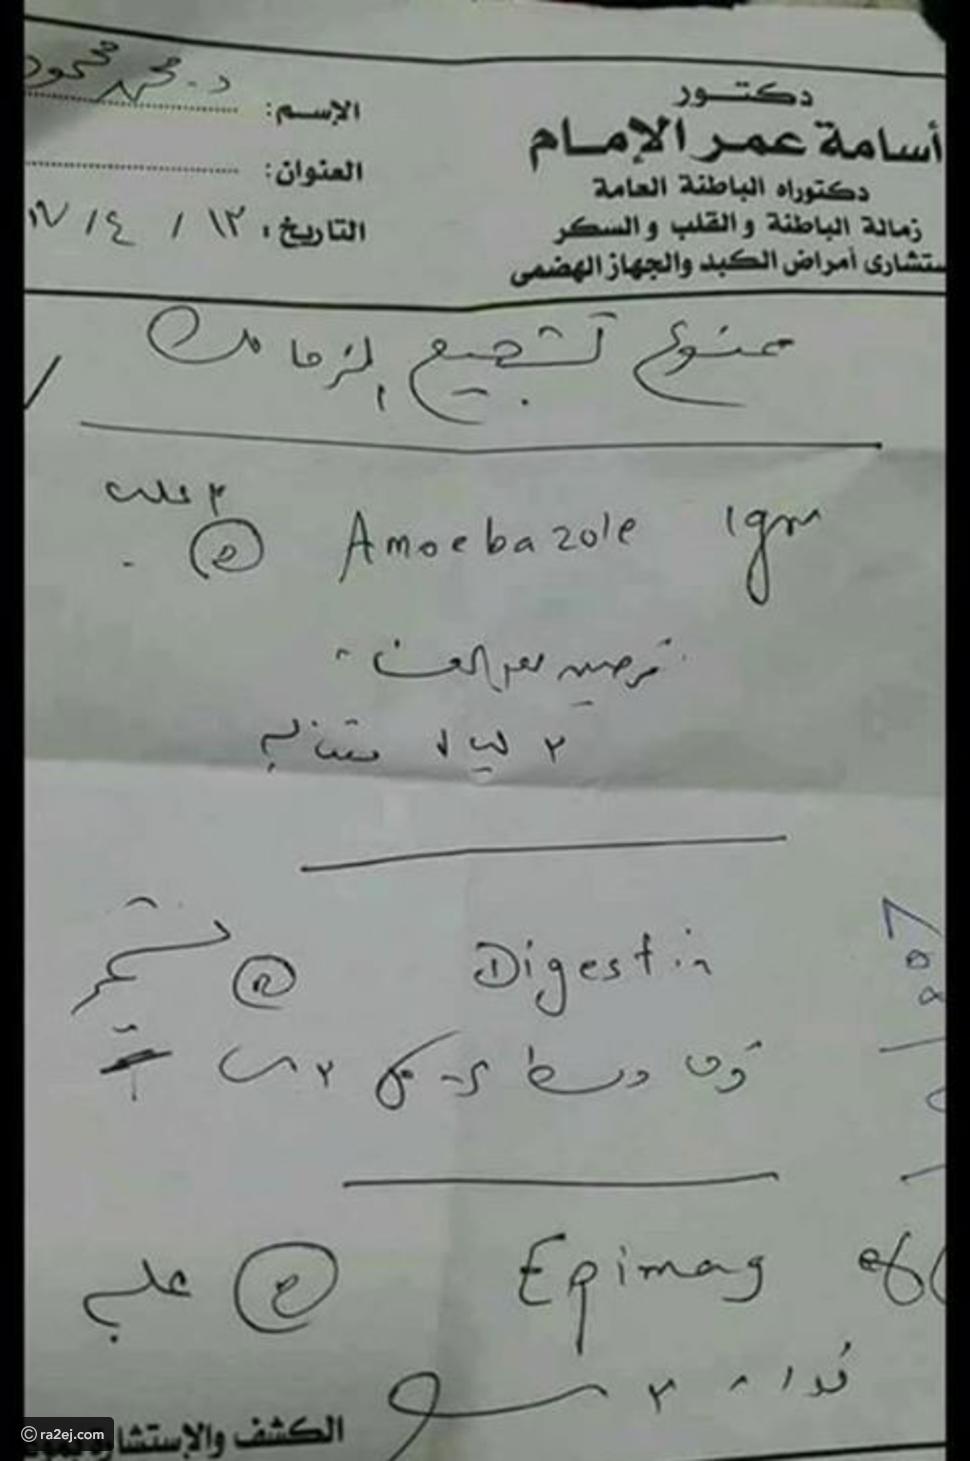 دكتور
أسامة عمر الإمام
دكتوراه الباطنة العامة
زمالة الباطنة والقلب والسكر
ستشارى أمراض الكبد والجهاز الهضمى
الإسم: د. محمد محمود
العنوان:
التاريخ: ١٣ / ٤ /
ممنوع تشجيع الزمالك
Amoebazole 1gm
قرصين بعد العشاء
ليال متتالية
Digestin
قرص وسط كل
Epimag eff
فوار
علبة
الكشف والإستشارة
© ra2ej.com